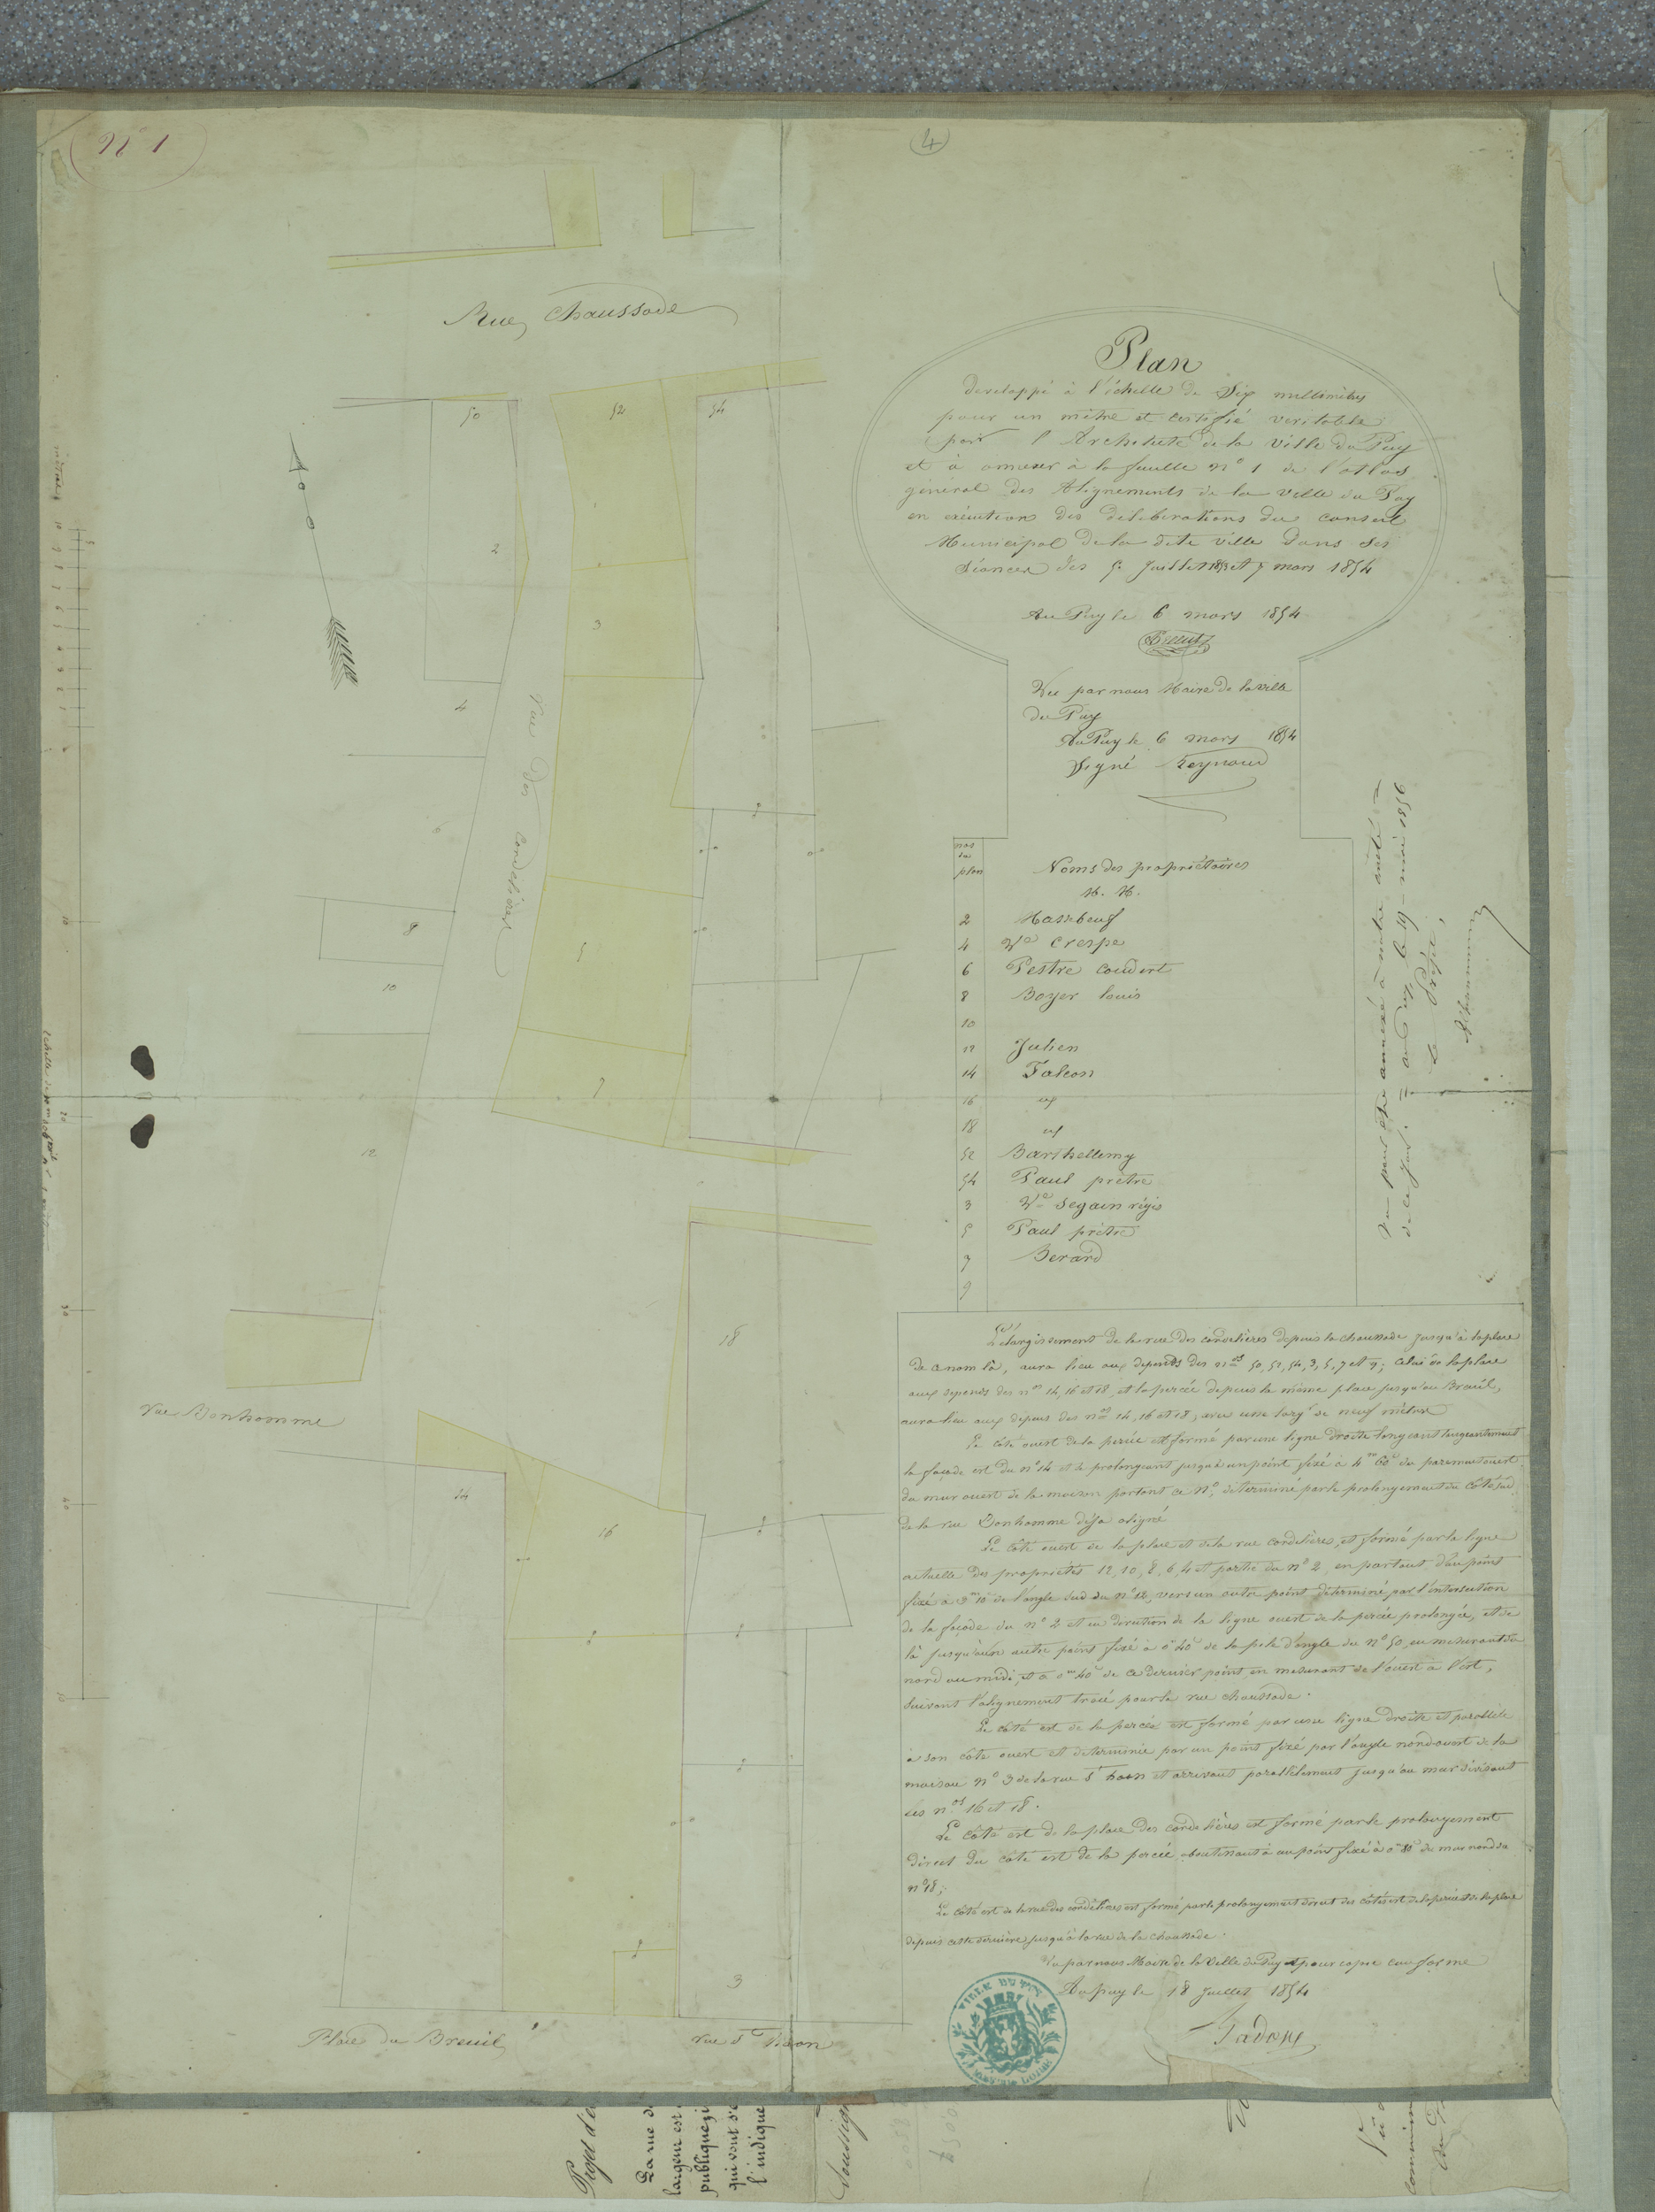 N° 1
4
Rue Chaussade
50
52
54
2
1
3
4
Rue des Cordelières
6
8
5
10
7
12
18
Rue Bonhomme
14
16
3
Place du Breuil
rue St Haon
Plan
developpé à l'échelle de Six millimètres
pour un mètre et certifié veritable
par l'Architecte de la ville du Puy
et à annexer à la feuille n° 1 de l'atlas
général des Alignements de la ville du Puy
en exécution des délibérations du conseil
Municipal de la dite ville dans ses
séances des 5 Juillet 1853 et 7 mars 1854
Au Puy le 6 mars 1854
Vu par nous Maire de la ville
du Puy
Au Puy le 6 mars 1854
Signé Reynaud
nos du plan
Noms des propriétaires
M. M.
2
4 Ve Crespe
6 Pestre Coudert
8 Boyer louis
10
12 Julien
14 Falcon
16
18
52 Barthellemy
54 Paul prêtre
3 Ve Segain régis
5 Paul prêtre
7 Berard
9
Vu pour être annexé à notre arrêté
de ce jour. au Puy, le 19 mai 1856
Le Préfet,
L'élargissement de la rue des cordelières depuis la chaussade jusqu'à la place
de ce nom là, aura lieu aux depends des nos 50, 52, 54, 3, 5, 7 et 9; celui de la place
aux depends des nos 14, 16 et 18, et la percée depuis la même place jusqu'au Breuil,
aura lieu aux depens des nos 14, 16 et 18, avec une largr de neuf mètres
Le côté ouest de la percée est formé par une ligne droite longeant
la façade est du n° 14 et se prolongeant jusqu'à un point fixé à 4m 60c du parement ouest
du mur ouest de la maison portant ce n°, déterminé par le prolongement du côté sud
de la rue Bonhomme déja aligné
Le côté ouest de la place et de la rue cordelières, est formé par la ligne
actuelle des propriétés 12, 10, 8, 6, 4 et partie du n° 2, en partant d'un point
fixé à 3m 10 de l'angle sud du n° 12, vers un autre point déterminé par l'intersection
de la façade du n° 2 et en direction de la ligne ouest de la percée prolongée, et de
là jusqu'à un autre point fixé à 0m 40c de la pile d'angle du n° 50, en mesurant du
nord au midi, et à 0m 40c de ce dernier point en mesurant de l'ouest à l'est,
suivant l'alignement tracé pour la rue chaussade.
Le côté est de la percée est formé par une ligne droite et parallele
à son côté ouest et determinée par un point fixé par l'angle nord-ouest de la
maison n° 3 de la rue St haon et arrivant parallèlement jusqu'au mur divisant
les nos 16 et 18.
Le côté est de la place des cordelières est formé par le prolongement
direct du côté est de la percée aboutissant à un point fixé à 0m 80c du mur nord du
n° 18;
Le côté est de la rue des cordelières est formé par le prolongement direct des côtés est de la percée et de la place
depuis cette dernière jusqu'à la rue de la chaussade.
Vu par nous Maire de la Ville du Puy et pour copie conforme
Au puy le 18 Juillet 1854
VILLE DU PUY
HAUTE LOIRE
Projet d'
La rue d
largeur est
publique
qui vont s'e
l'indique
Soussign